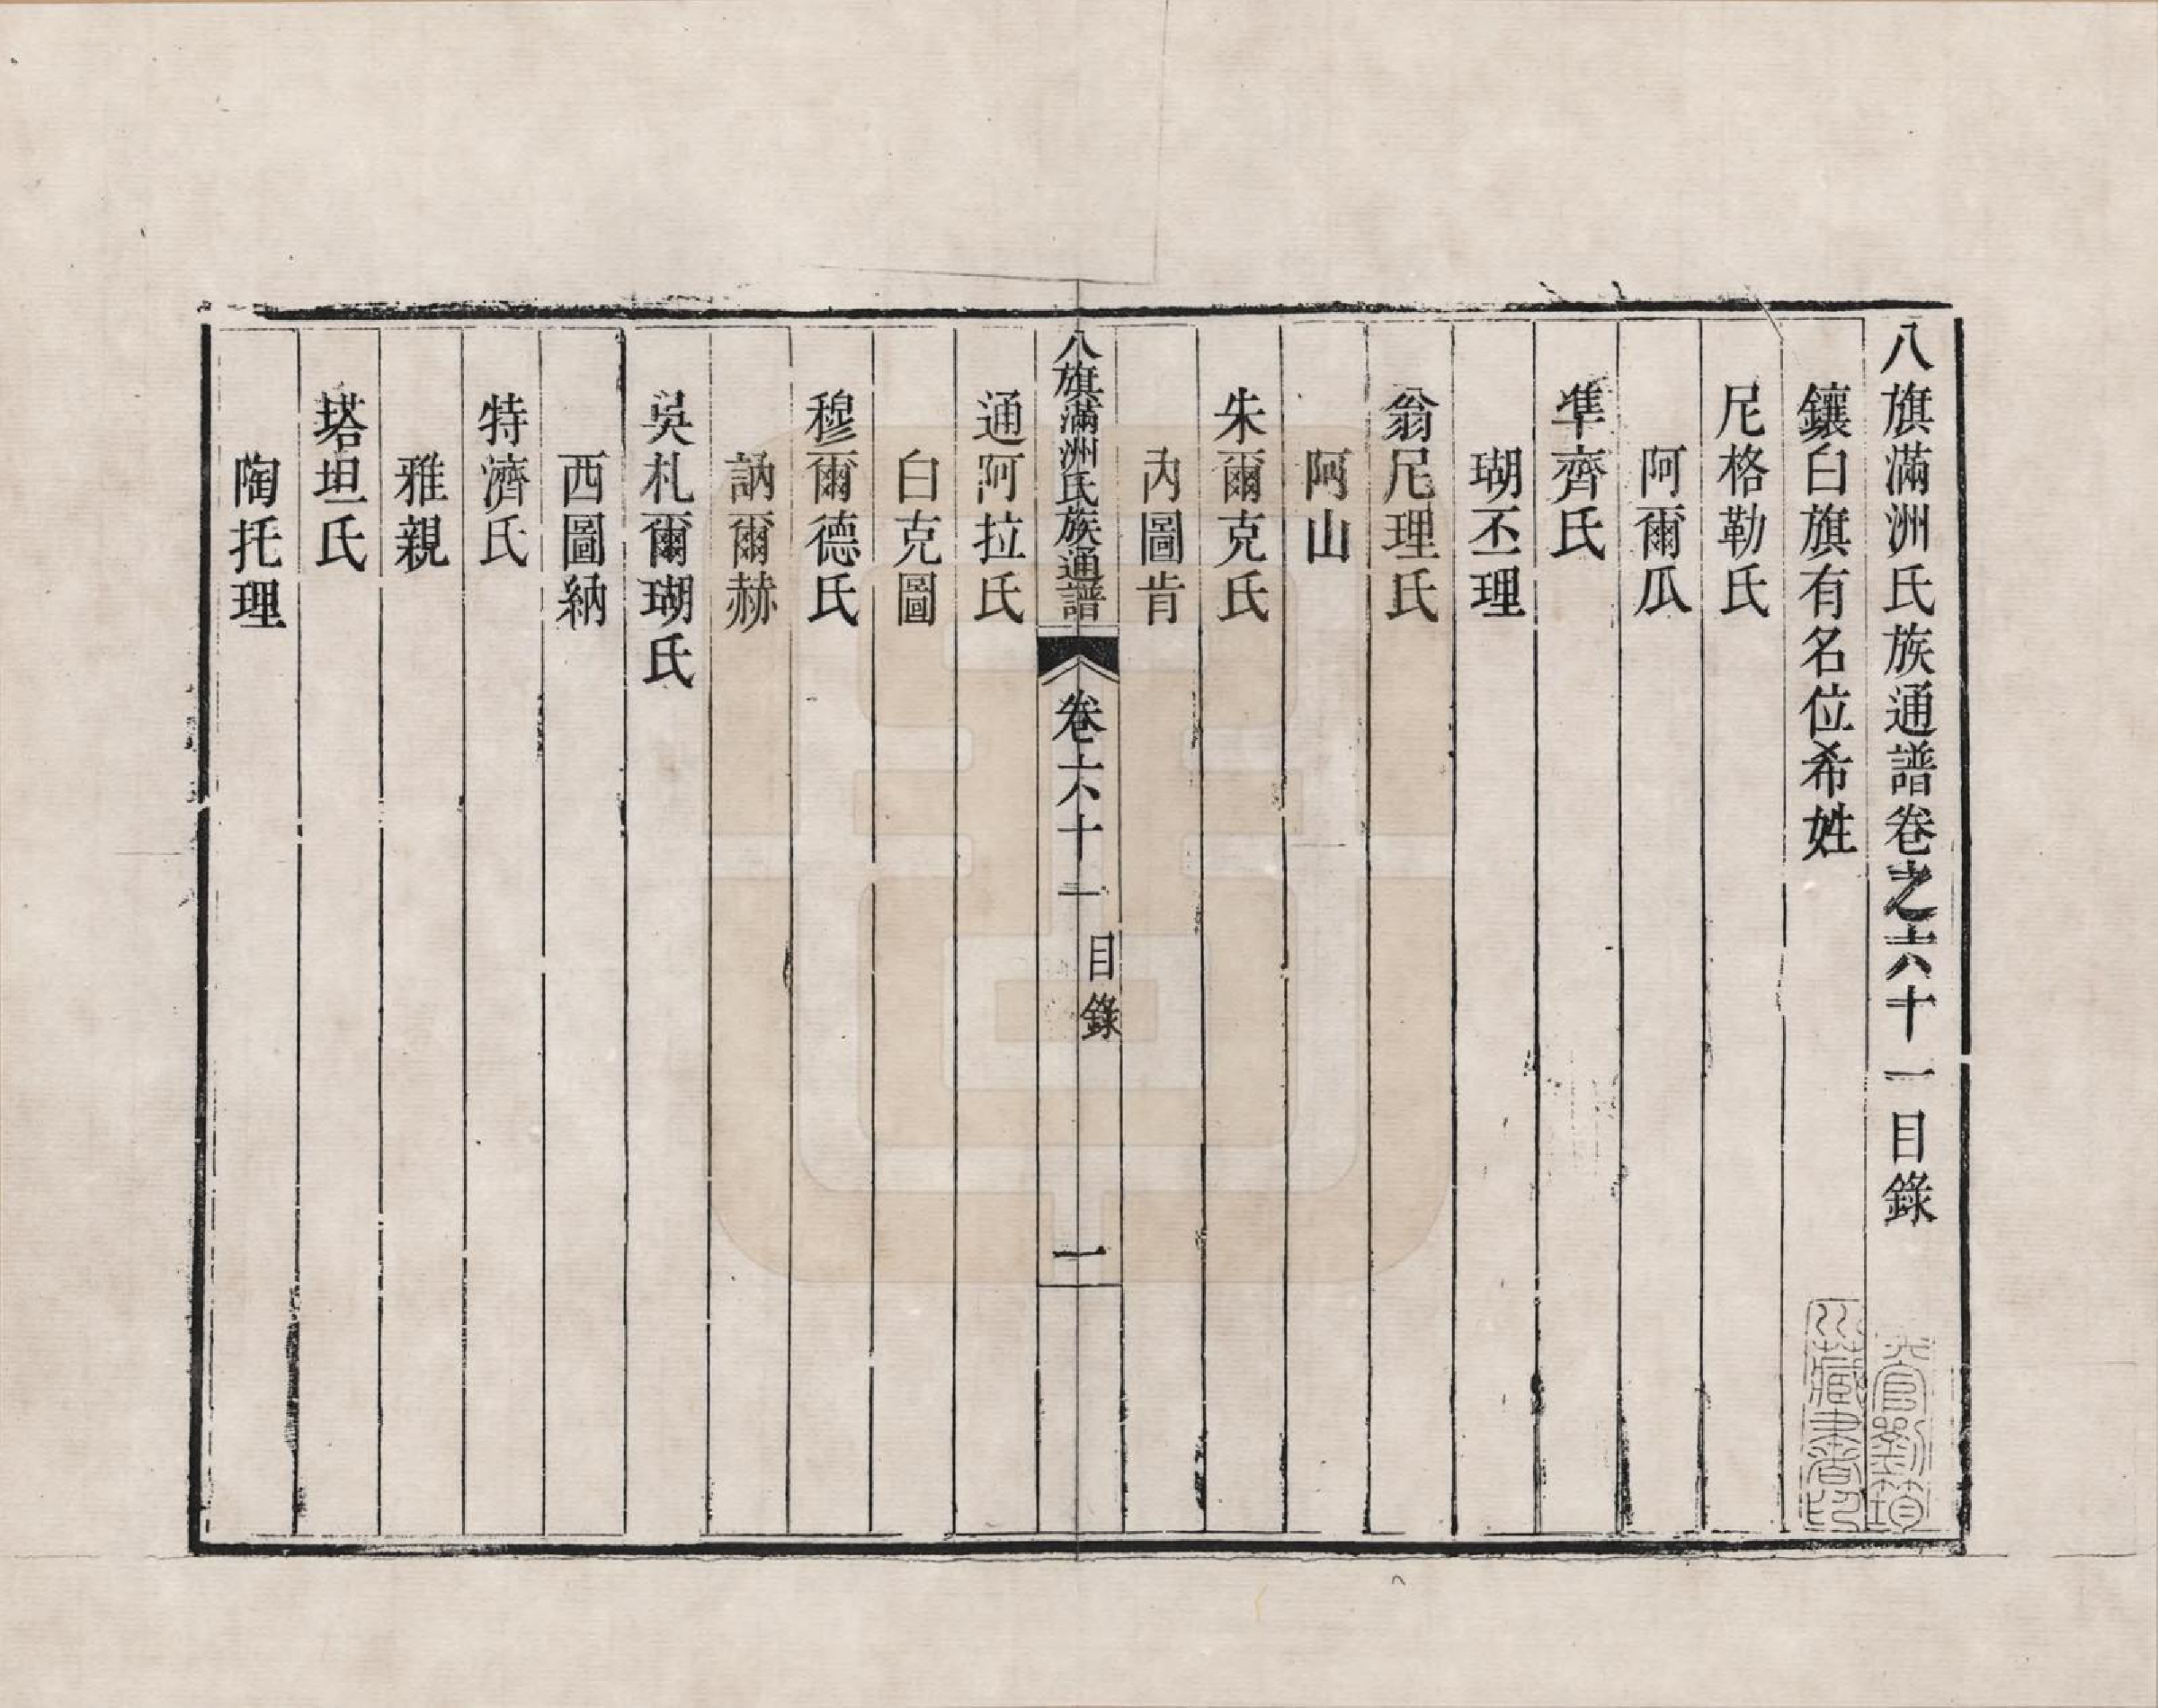 八旗滿洲氏族通譜卷之六十一目錄
鑲白旗有名位希姓
尼格勒氏
阿爾瓜
凖齊氏
瑚丕理
翁尼理氏
阿山
朱爾克氏
內圖肯
八旗滿洲氏族通譜 卷六十一 目錄 一
通阿拉氏
白克圖
穆爾德氏
訥爾赫
吳札爾瑚氏
西圖納
特濟氏
雅親
塔坦氏
陶托理